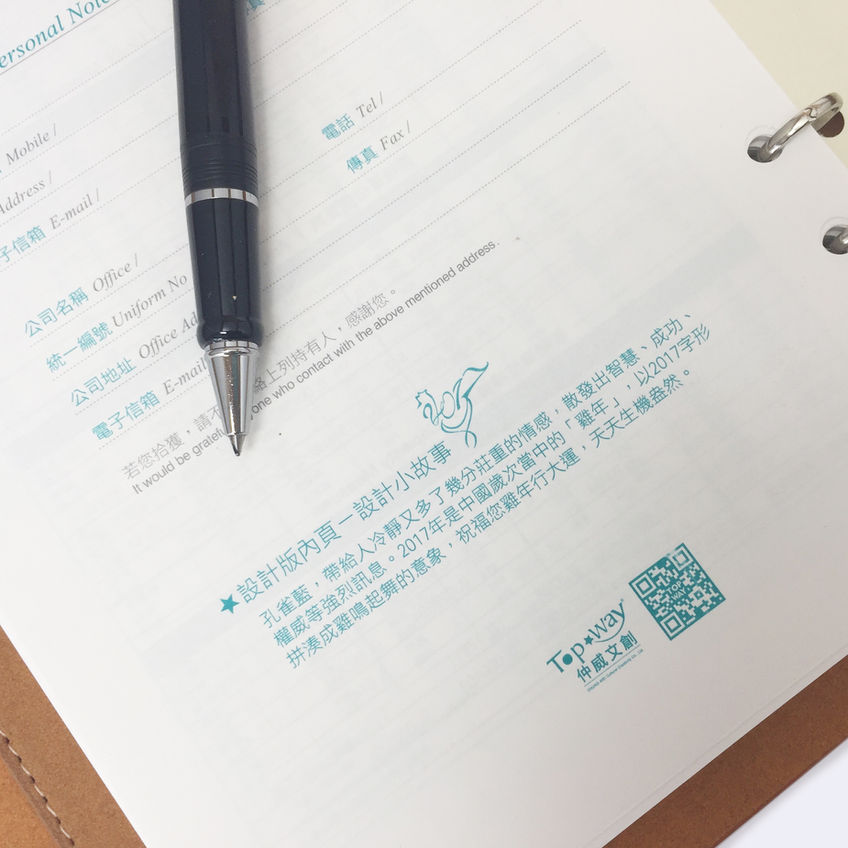 ersonal Note
Mobile /
Address /
子信箱 E-mail /
電話 Tel /
傳真 Fax /
公司名稱 Office /
統一編號 Uniform No
公司地址 Office Ad
電子信箱 E-mail
若您拾獲，請不 絡上列持有人，感謝您。
It would be grateful one who contact with the above mentioned address.
★設計版內頁－設計小故事
孔雀藍，帶給人冷靜又多了幾分莊重的情感，散發出智慧、成功、
權威等強烈訊息。2017年是中國歲次當中的「雞年」，以2017字形
拼湊成雞鳴起舞的意象，祝福您雞年行大運，天天生機盎然。
Top★Way
仲威文創
TOP
WAY